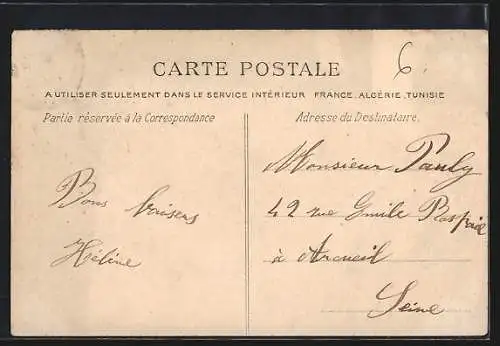 CARTE POSTALE
6
A UTILISER SEULEMENT DANS LE SERVICE INTÉRIEUR FRANCE, ALGÉRIE, TUNISIE
Partie réservée à la Correspondance
Adresse du Destinataire.
Bons baisers
Hélène
Monsieur Pauly
42 rue Emile Raspail
à Arcueil
Seine